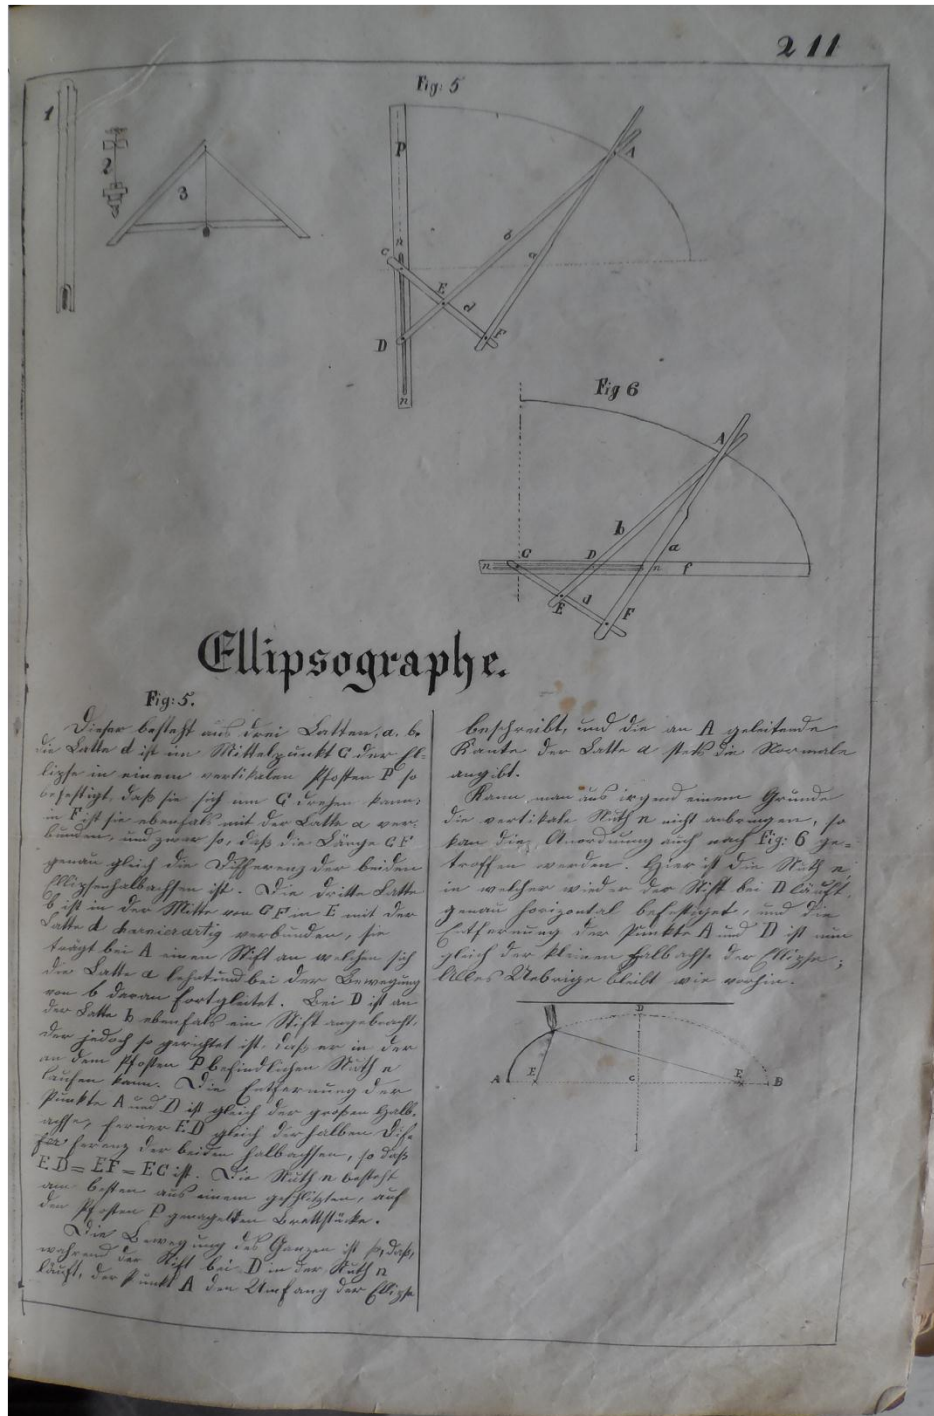 211
Fig: 5
1
2
3
P
A
b
a
n
C
E
d
F
D
n
Fig 6
A
b
a
C
D
n
n
f
E
d
F
Ellipsographe.
Fig: 5.
Dieser besteht aus drei Latten, a. b.
die Latte d ist im Mittelpunkt C der El-
lipse in einem vertikalen Pfosten P so
befestigt, daß sie sich um C drehen kann;
in F ist sie ebenfals mit der Latte a ver-
bunden, und zwar so, daß die Länge CF
genau gleich die Differenz der beiden
Ellipsenhalbachsen ist. Die dritte Latte
b ist in der Mitte von CF in E mit der
Latte d verbunden, sie
trägt bei A einen Stift an welchen sich
die Latte a lehnt und bei der Bewegung
von b daran fortgleitet. Bei D ist an
der Latte b ebenfals ein Stift angebracht,
der jedoch so gerichtet ist, daß er in der
an dem Pfosten P befindlichen Nuth n
laufen kann. Die Entfernung der
Punkte A und D ist gleich der großen Halb-
achse, ferner ED gleich der halben Dif-
ferenz der beiden Halbachsen, so daß
ED = EF = EC ist. Die Nuth n besteht
am besten aus einem geschlitzten, auf
den Pfosten P genagelten Brettstücke.
Die Bewegung des Ganzen ist so, daß,
während der Stift bei D in der Nuth n
läuft, der Punkt A den Umfang der Ellipse
beschreibt, und die an A geleitende
Kante der Latte a stets die Normale
angibt.
Kann man aus irgend einem Grunde
die vertikale Nuth n nicht anbringen, so
kan die Anordnung auch nach Fig: 6 ge-
troffen werden. Hier ist die Nuth n,
in welcher wieder der Stift bei D läuft,
genau horizontal befestiget, und die
Entfernung der Punkte A und D ist nun
gleich der kleinen Halbachse der Ellipse;
Alles Uebrige bleibt wie vorhin.
D
A
E
C
E
B